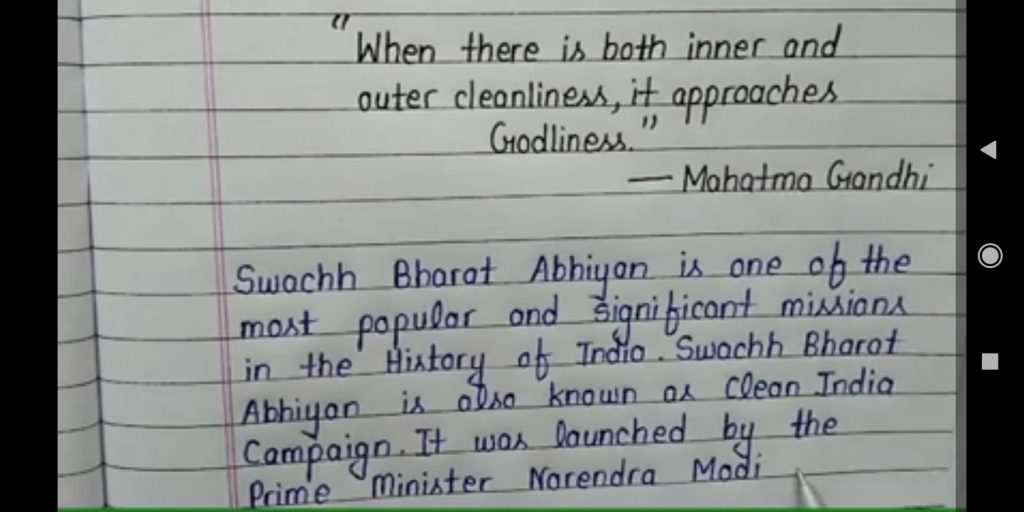 "When there is both inner and
outer cleanliness, it approaches
Godliness."
— Mahatma Gandhi
Swachh Bharat Abhiyan is one of the
most popular and significant missions
in the History of India. Swachh Bharat
Abhiyan is also known as Clean India
Campaign. It was launched by the
Prime Minister Narendra Modi